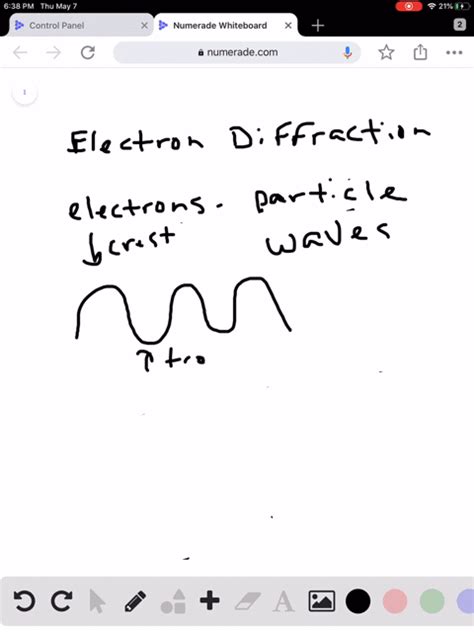 6:38 PM Thu May 7
21%
Control Panel
Numerade Whiteboard
2
numerade.com
1
Electron Diffraction
electrons - particle
crest waves
tro
A